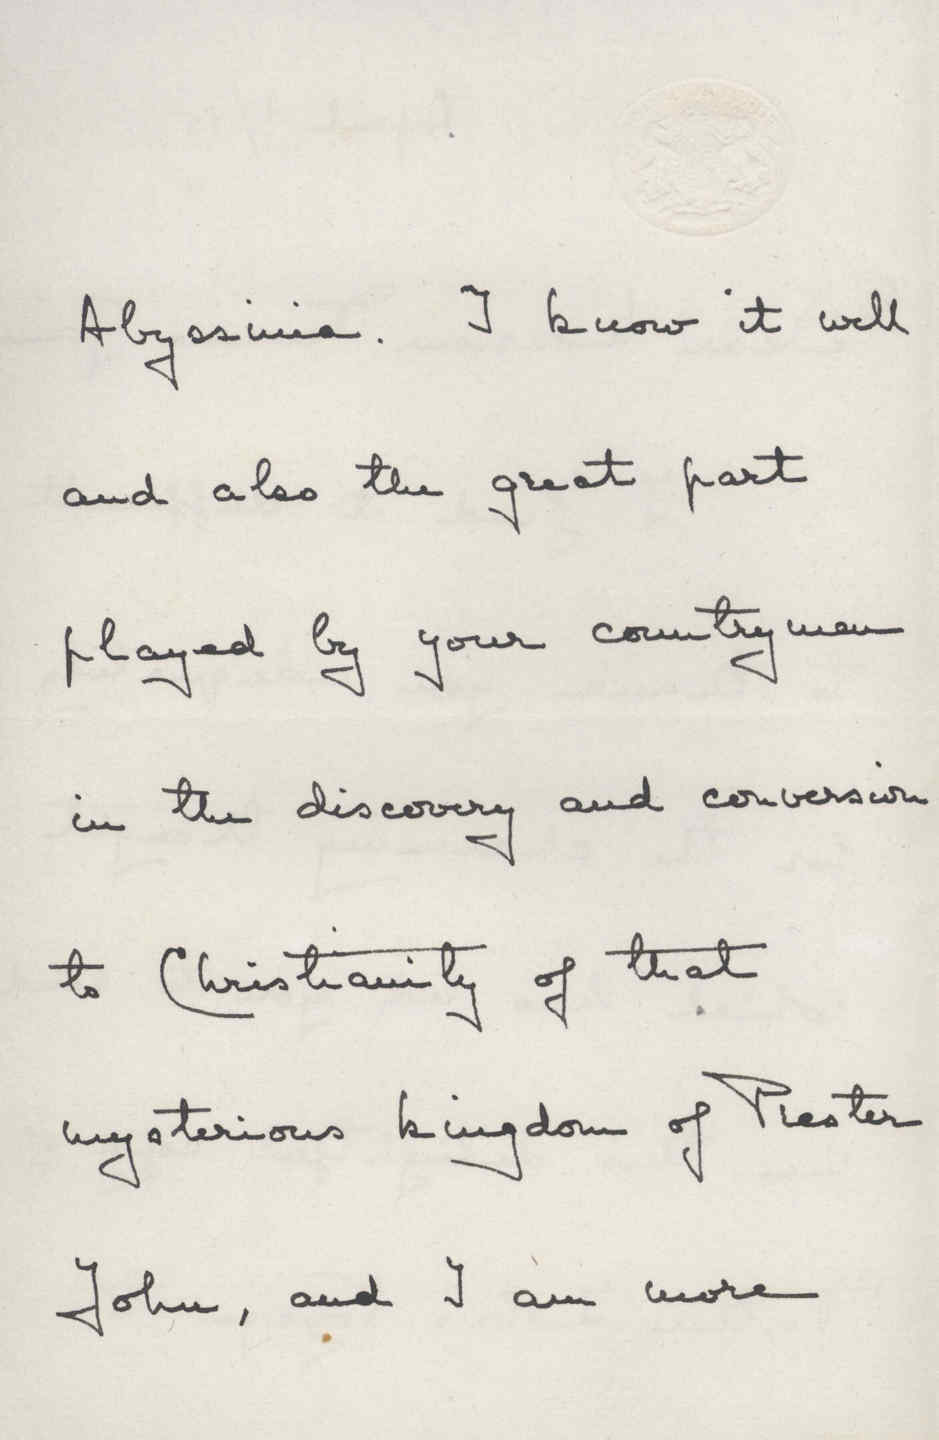 Abyssinia. I know it well
and also the great part
played by your countrymen
in the discovery and conversion
to Christianity of that
mysterious kingdom of Prester
John, and I am more